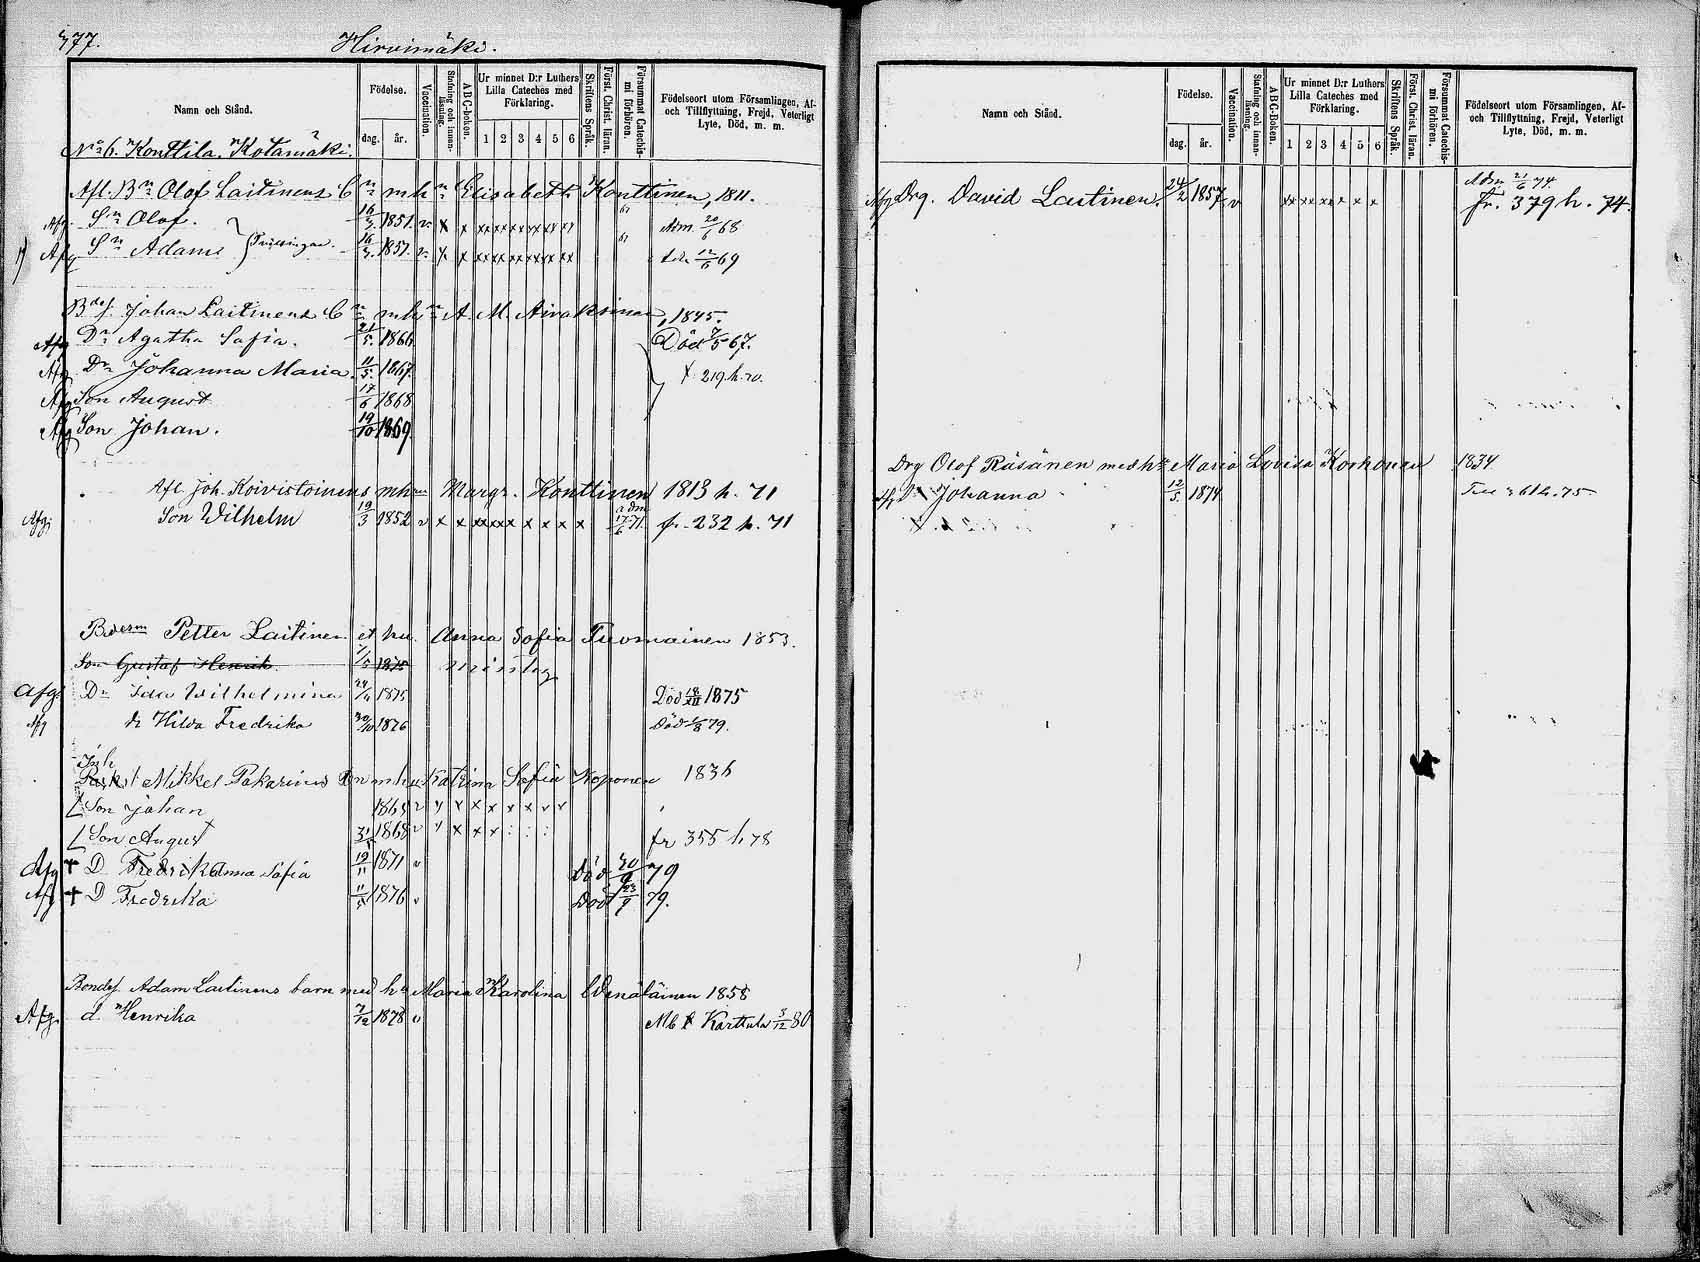 377. Hirvimäki.
Namn och Stånd.
Födelse.
dag. år.
Vaccination.
Stafning och innanläsning.
ABC-boken.
Ur minnet D:r Luthers Lilla Cateches med Förklaring.
1 2 3 4 5 6
Skriftens Språk.
Först. Christ. läran.
Försummat Catechismi förhören.
Födelseort utom Församlingen, Af- och Tillflyttning, Frejd, Veterligt Lyte, Död, m. m.
No 6. Konttila. Kotamäki.
Afl. Bn Olof Laitinens Bn m hn Elisabeth Konttinen, 1811.
Afg. Sn Olof. 16/3 1851. v x x xx xx xx xx xx xx Adm. 20/6 68
Afg Sn Adam Tvillingar. 16/3 1851. v x x xx xx xx xx xx xx 12/6 69
Bdes. Johan Laitinens Bn m hn A. M. Airaksinen, 1845.
Afg Dr Agatha Sofia. 21/5 1866 Död 7/5 67.
Afg Dr Johanna Maria. 11/5 1867. 219. h. 70.
Afg Son August 17/6 1868
Afg Son Johan. 19/10 1869
Afl. Joh. Koivistoinens m hn Margr. Konttinen 1813 h. 71
Afg. Son Wilhelm 19/3 1852 v x x xx xx x x x x x adm 17/6 71. fr. 232 h. 71
Bdesm Petter Laitinen et hu. Anna Sofia Tuomainen 1853.
Son Gustaf Henrik. 1/5 1875 misstag
Afg. Dr Ida Wilhelmina 24/4 1875 Död 18/XII 1875
Afg dr Hilda Fredrika 30/10 1876 Död 79.
Inh Mikkel Pakarinens Bn m hu Katrina Sofia Koponen 1836
Son Johan 1865 v x x x x x x x x
Son August 31/5 1868 v x x x x : : : fr 355 h 78
Afg † D Anna Sofia 19/11 1871 v Död 30/9 79
Afg † D Fredrika 11/5 1876 v Död 23/9 79.
Bondes. Adam Laitinens barn med hu Maria Karolina Wenäläinen 1858
Afg. d. Henrika 7/12 1878 v Mb t Karttula 3/12 80
Namn och Stånd.
Födelse.
dag. år.
Vaccination.
Stafning och innanläsning.
ABC-Boken.
Ur minnet D:r Luthers Lilla Cateches med Förklaring.
1 2 3 4 5 6
Skriftens Språk.
Först. Christ. läran.
Försummat Catechismi förhören.
Födelseort utom Församlingen, Af- och Tillflyttning, Frejd, Veterligt Lyte, Död, m. m.
Afg Drg. David Laitinen. 24/2 1857 v xx xx xx x x x Adm 21/6 74. fr. 379 h. 74.
Drg Olof Räsänen med hu Maria Lovisa Korhonen 1834
Afg Dr Johanna 12/5 1874